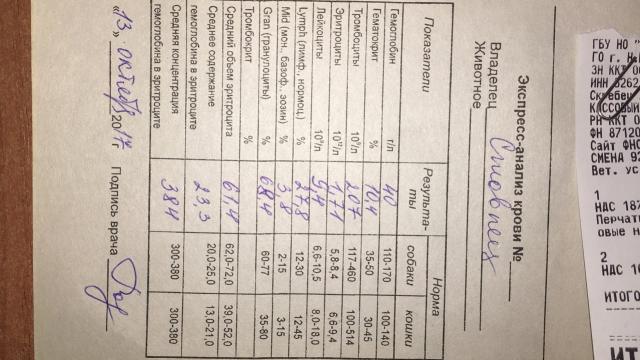 Экспресс-анализ крови №
Владелец
Животное
Показатели Результа-ты Норма
собаки кошки
Гемоглобин г/л 40 110-170 100-140
Гематокрит % 10,4 35-50 30-45
Тромбоциты 10⁹/л 207 117-460 100-514
Эритроциты 10¹²/л 1,71 5,8-8,4 6,6-9,4
Лейкоциты 10⁹/л 5,4 6,6-10,5 8,0-18,0
Lymph (лимф., нормоц.) % 27,8 12-30 12-45
Mid (мон., базоф., эозин) % 3,8 2-15 3-15
Gran (гранулоциты) % 68,4 60-77 35-80
Тромбокрит %
Средний объем эритроцита 61,4 62,0-72,0 39,0-52,0
Среднее содержание гемоглобина в эритроците 23,3 20,0-25,0 13,0-21,0
Средняя концентрация гемоглобина в эритроците 384 300-380 300-380
«13» октября 2017г Подпись врача
ГБУ НО "
ГО г. Н
ЗН ККТ 0
ИНН 5262
КАССОВЫЙ
РН ККТ 0
ФН 87120
Сайт ФНС
СМЕНА 92
Вет. ус
1
НДС 18%
Перчат
овые н
2
НДС 1
ИТОГО
ИТ